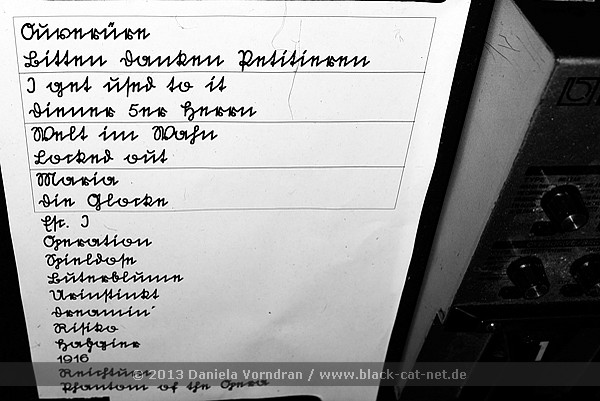 Ouvertüre
Bitten Danken Petitieren
I get used to it
Diener 5er Herrn
Welt im Wahn
Locked out
Maria
Die Glocke
Ep. I
Operation
Spieldose
Butterblume
Urinstinkt
Dreamin'
Risiko
Habgier
1916
Reichtum
Phantom of the Opera
1
© 2013 Daniela Vorndran / www.black-cat-net.de